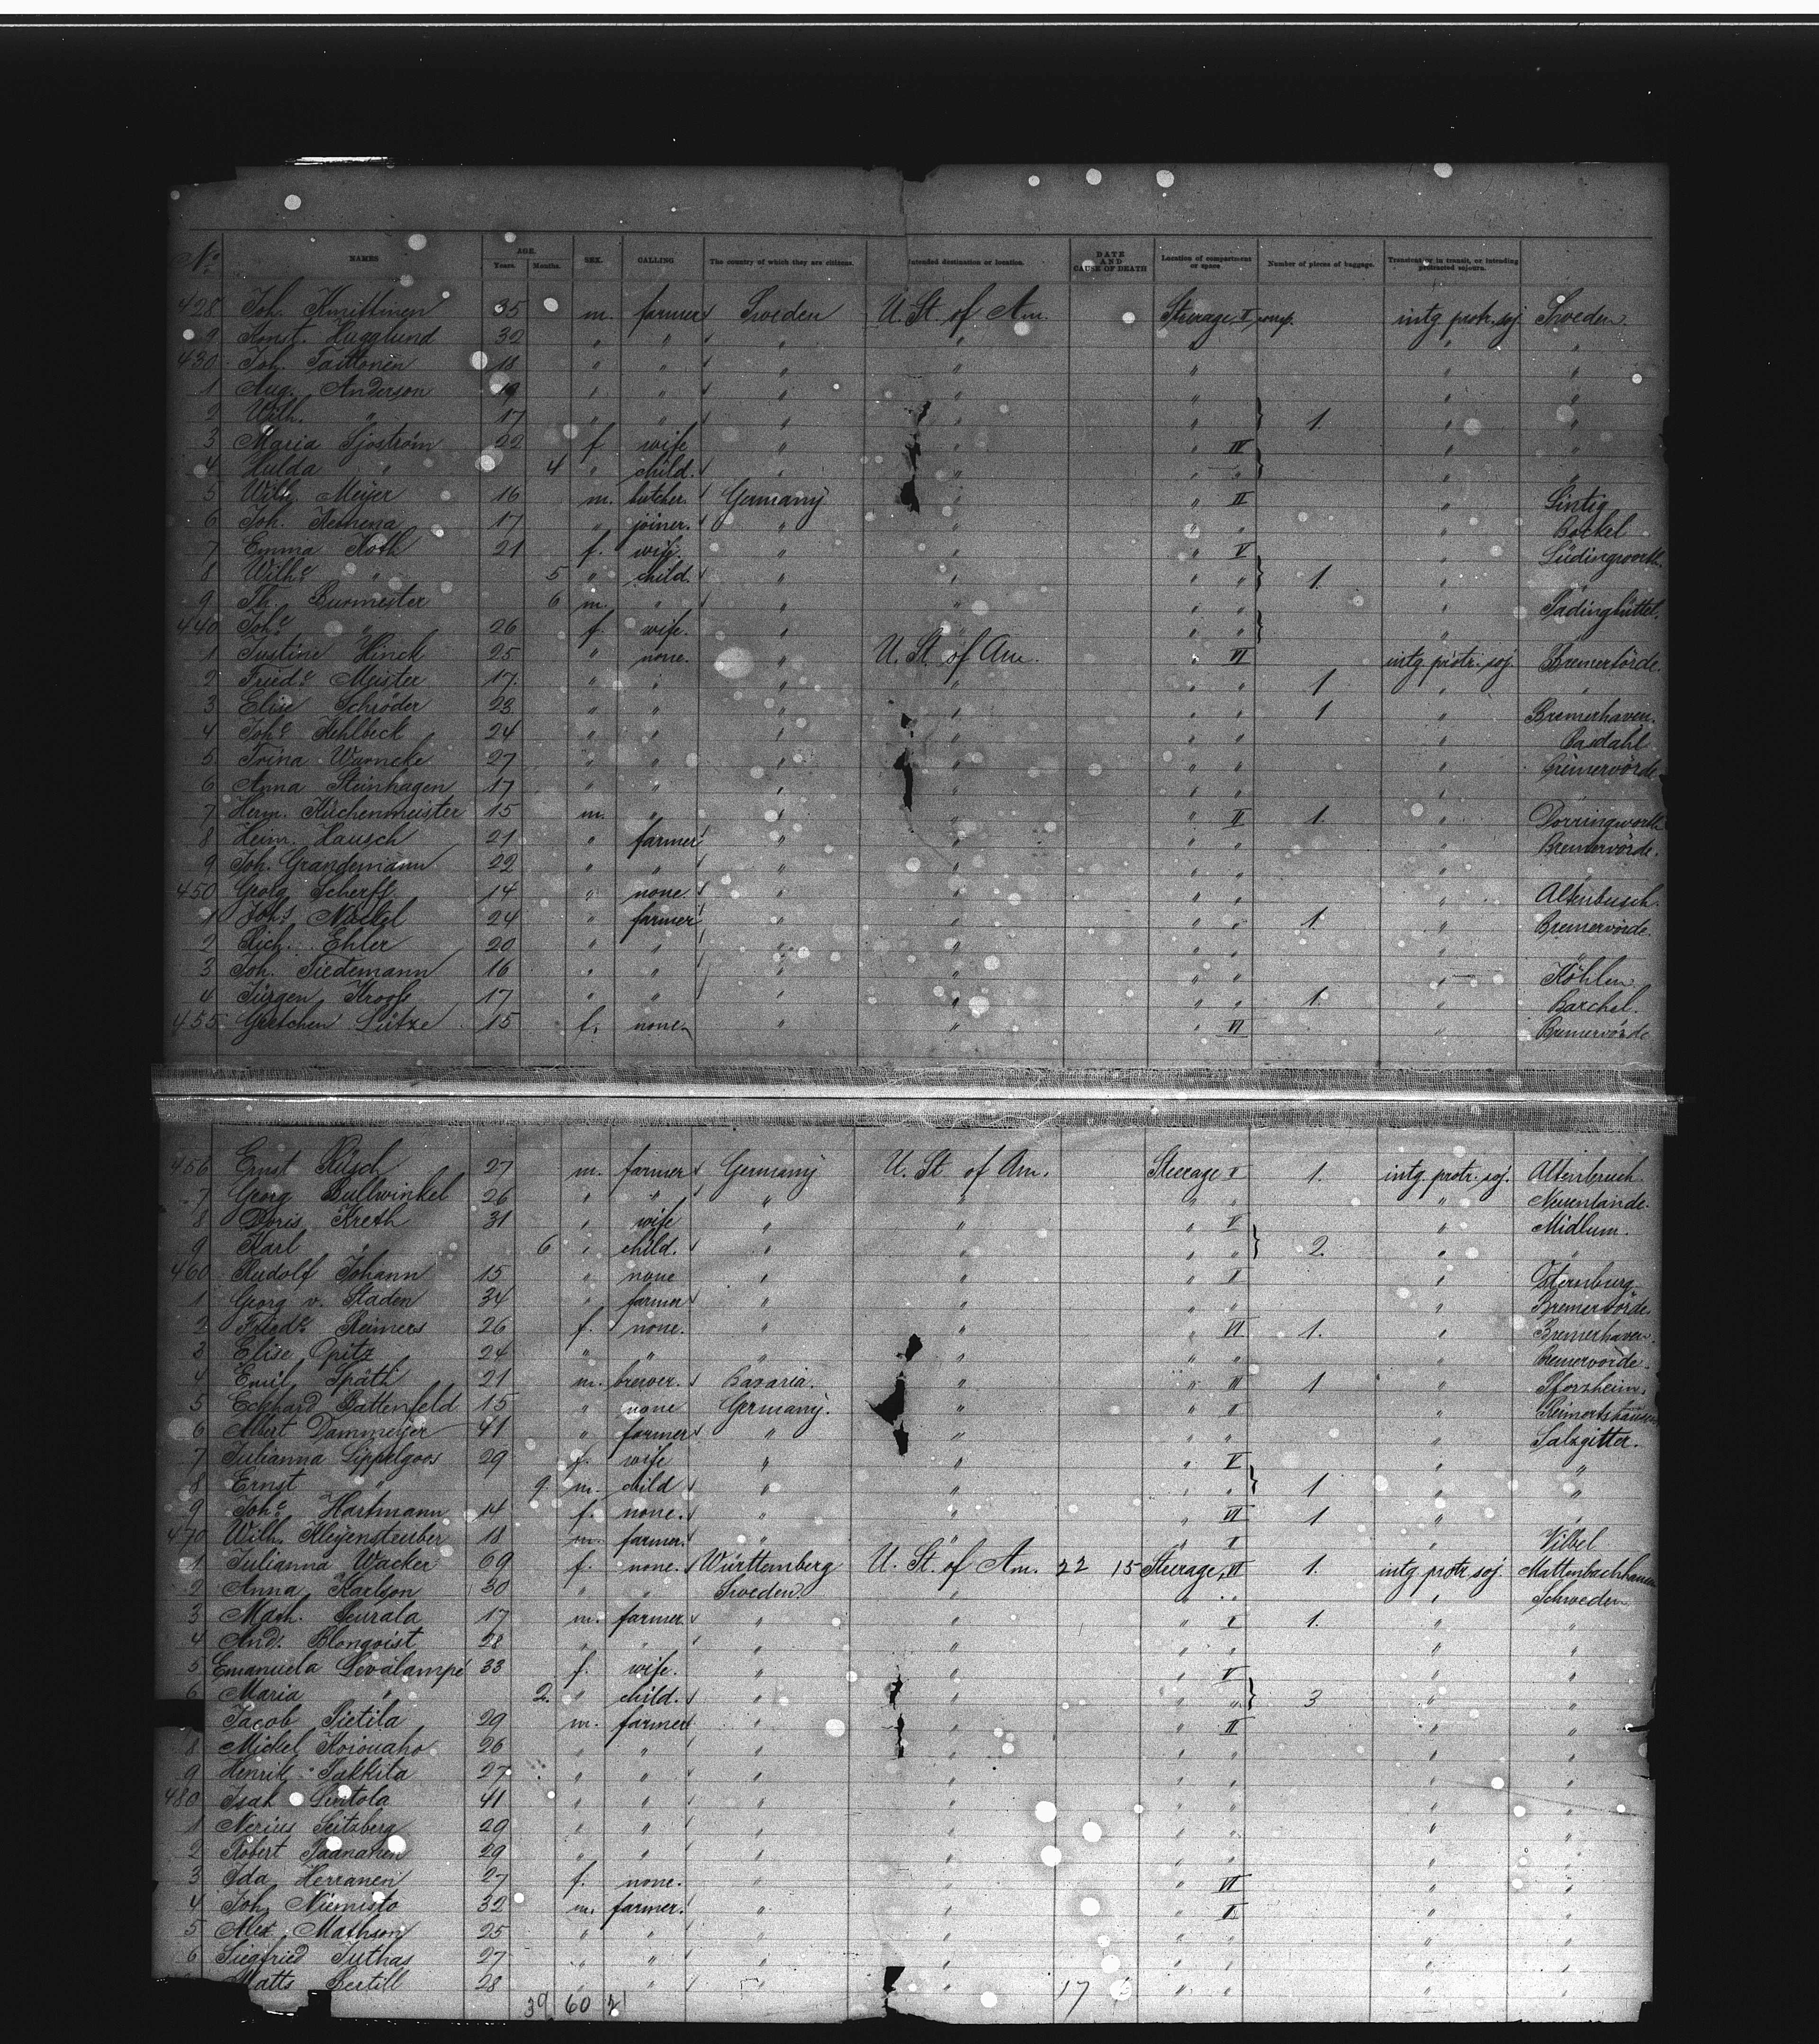 No. NAMES AGE. Years. Months. SEX. CALLING The country of which they are citizens. Intended destination or location. DATE AND CAUSE OF DEATH Location of compartment or space Number of pieces of baggage. Transient or in transit, or intending protracted sojourn.
428 Joh. 35 m. farmer Sweden U. St. of Am. Steerage II comp. intg. protr. soj. Sweden.
9 Konst. Hägglund 32 " " " " " " "
430 Joh. 18 " " " " " " "
1 Aug. Anderson 19 " " " " " " "
2 Wilh. " 17 " " " " " 1. " "
3 Maria Sjöström 22 f. wife " " " III " "
4 Hulda " 4 " child. " " " " " "
5 Wilh. Meyer 16 m. butcher. Germany " " II "
6 Joh. Kemena 17 " joiner. " " " " " Bockel
7 Emma Koth 21 f. wife. " " " V " Lüdingworth.
8 Wilhe " 5 " child. " " " " 1. " "
9 Th. Burmester 6 m. " " " " " " Padingbüttel.
440 Johe " 26 f. wife. " " " " " "
1 Justine Hinck 25 " none. " U. St. of Am. " VI intg. protr. soj. Bremervörde.
2 Friede Meister 17. " " " " " " 1 " "
3 Elise Schröder 23 " " " " " " 1 " Bremerhaven.
4 Johe Kehlbeck 24 " " " " " " " Basdahl
5 Trina Warncke 27 " " " " " " " Bremervörde
6 Anna Steinhagen 17 " " " " " " " "
7 Herm. Küchenmeister 15 m. " " " " II 1. "
8 Heinr. Hausch 21 " farmer " " " " " Bremervörde.
9 Joh. Grandemann 22 " " " " " " " "
450 Georg Scherfl 14 " none. " " " " "
1 Johs Nöckel 24 " farmer " " " " 1. " Bremervörde.
2 Rich. Ehler 20 " " " " " " " "
3 Joh. Tiedemann 16 " " " " " " " Köhlen
4 Jürgen Kroofs 17 " " " " " " 1. " Barchel.
455 Gretchen Lütze 15 f. none. " " " VI " Bremervörde
456 Ernst Rüsch 27 m. farmer Germany U. St. of Am. Steerage II 1. intg. protr. soj. Altenbruch
7 Georg Bullwinkel 26 " " " " " " " Neuenlande.
8 Doris Kreth 31 " wife " " " V " Midlum.
9 Karl " 6 " child. " " " " 2. " "
460 Rudolf Johann 15 " none " " " I " Osternburg
1 Georg v. Staden 34 " farmer " " " " " Bremervörde.
2 Friede Reimers 26 f. none. " " " VI 1. " Bremerhaven.
3 Elise Opitz 24 " " " " " " " Bremervörde.
4 Emil Späth 21 m. brewer. Bavaria. " " III 1 " Pforzheim.
5 Eckhard Battenfeld 15 " none Germany. " " II "
6 Albert Dammeyer 41 " farmer " " " " " Salzgitter.
7 Julianna Lippelgoos 29 f. wife " " " V " "
8 Ernst " 9 m. child " " " " 1 " "
9 Johe Hartmann 14 f. none. " " " VI 1 " "
470 Wilh. Kleyensteuber 18 m. farmer. " " " I " Vilbel
1 Julianna Wacker 69 f. none. Württemberg U. St. of Am. 22 15 Steerage, VI 1. intg. protr. soj.
2 Anna Karlson 30 " " Sweden. " " " " Schweden
3 Math. Peurala 17 m. farmer " " " I 1. " "
4 And. Blonqvist 28 " " " " " " " "
5 Emanuela 33 f. wife. " " " V " "
6 Maria " 2. " child. " " " " 3 " "
Jacob Pietila 29 m. farmer " " " II " "
8 Mickel 26 " " " " " " " "
9 Henrik Takkila 27 " " " " " " " "
480 Isak Lintola 41 " " " " " " " "
1 Nerius Seitzberg 29 " " " " " " " "
2 Robert Paananen 29 " " " " " " " "
3 Ida Herranen 27 f. none. " " " VI " "
4 Joh. Niemisto 32 m. farmer. " " " II " "
5 Alex. Mathson 25 " " " " " " " "
6 Siegfried Juthas 27 " " " " " " " "
Matts Bertill 28 " " " " 17 " " " "
39 60 21